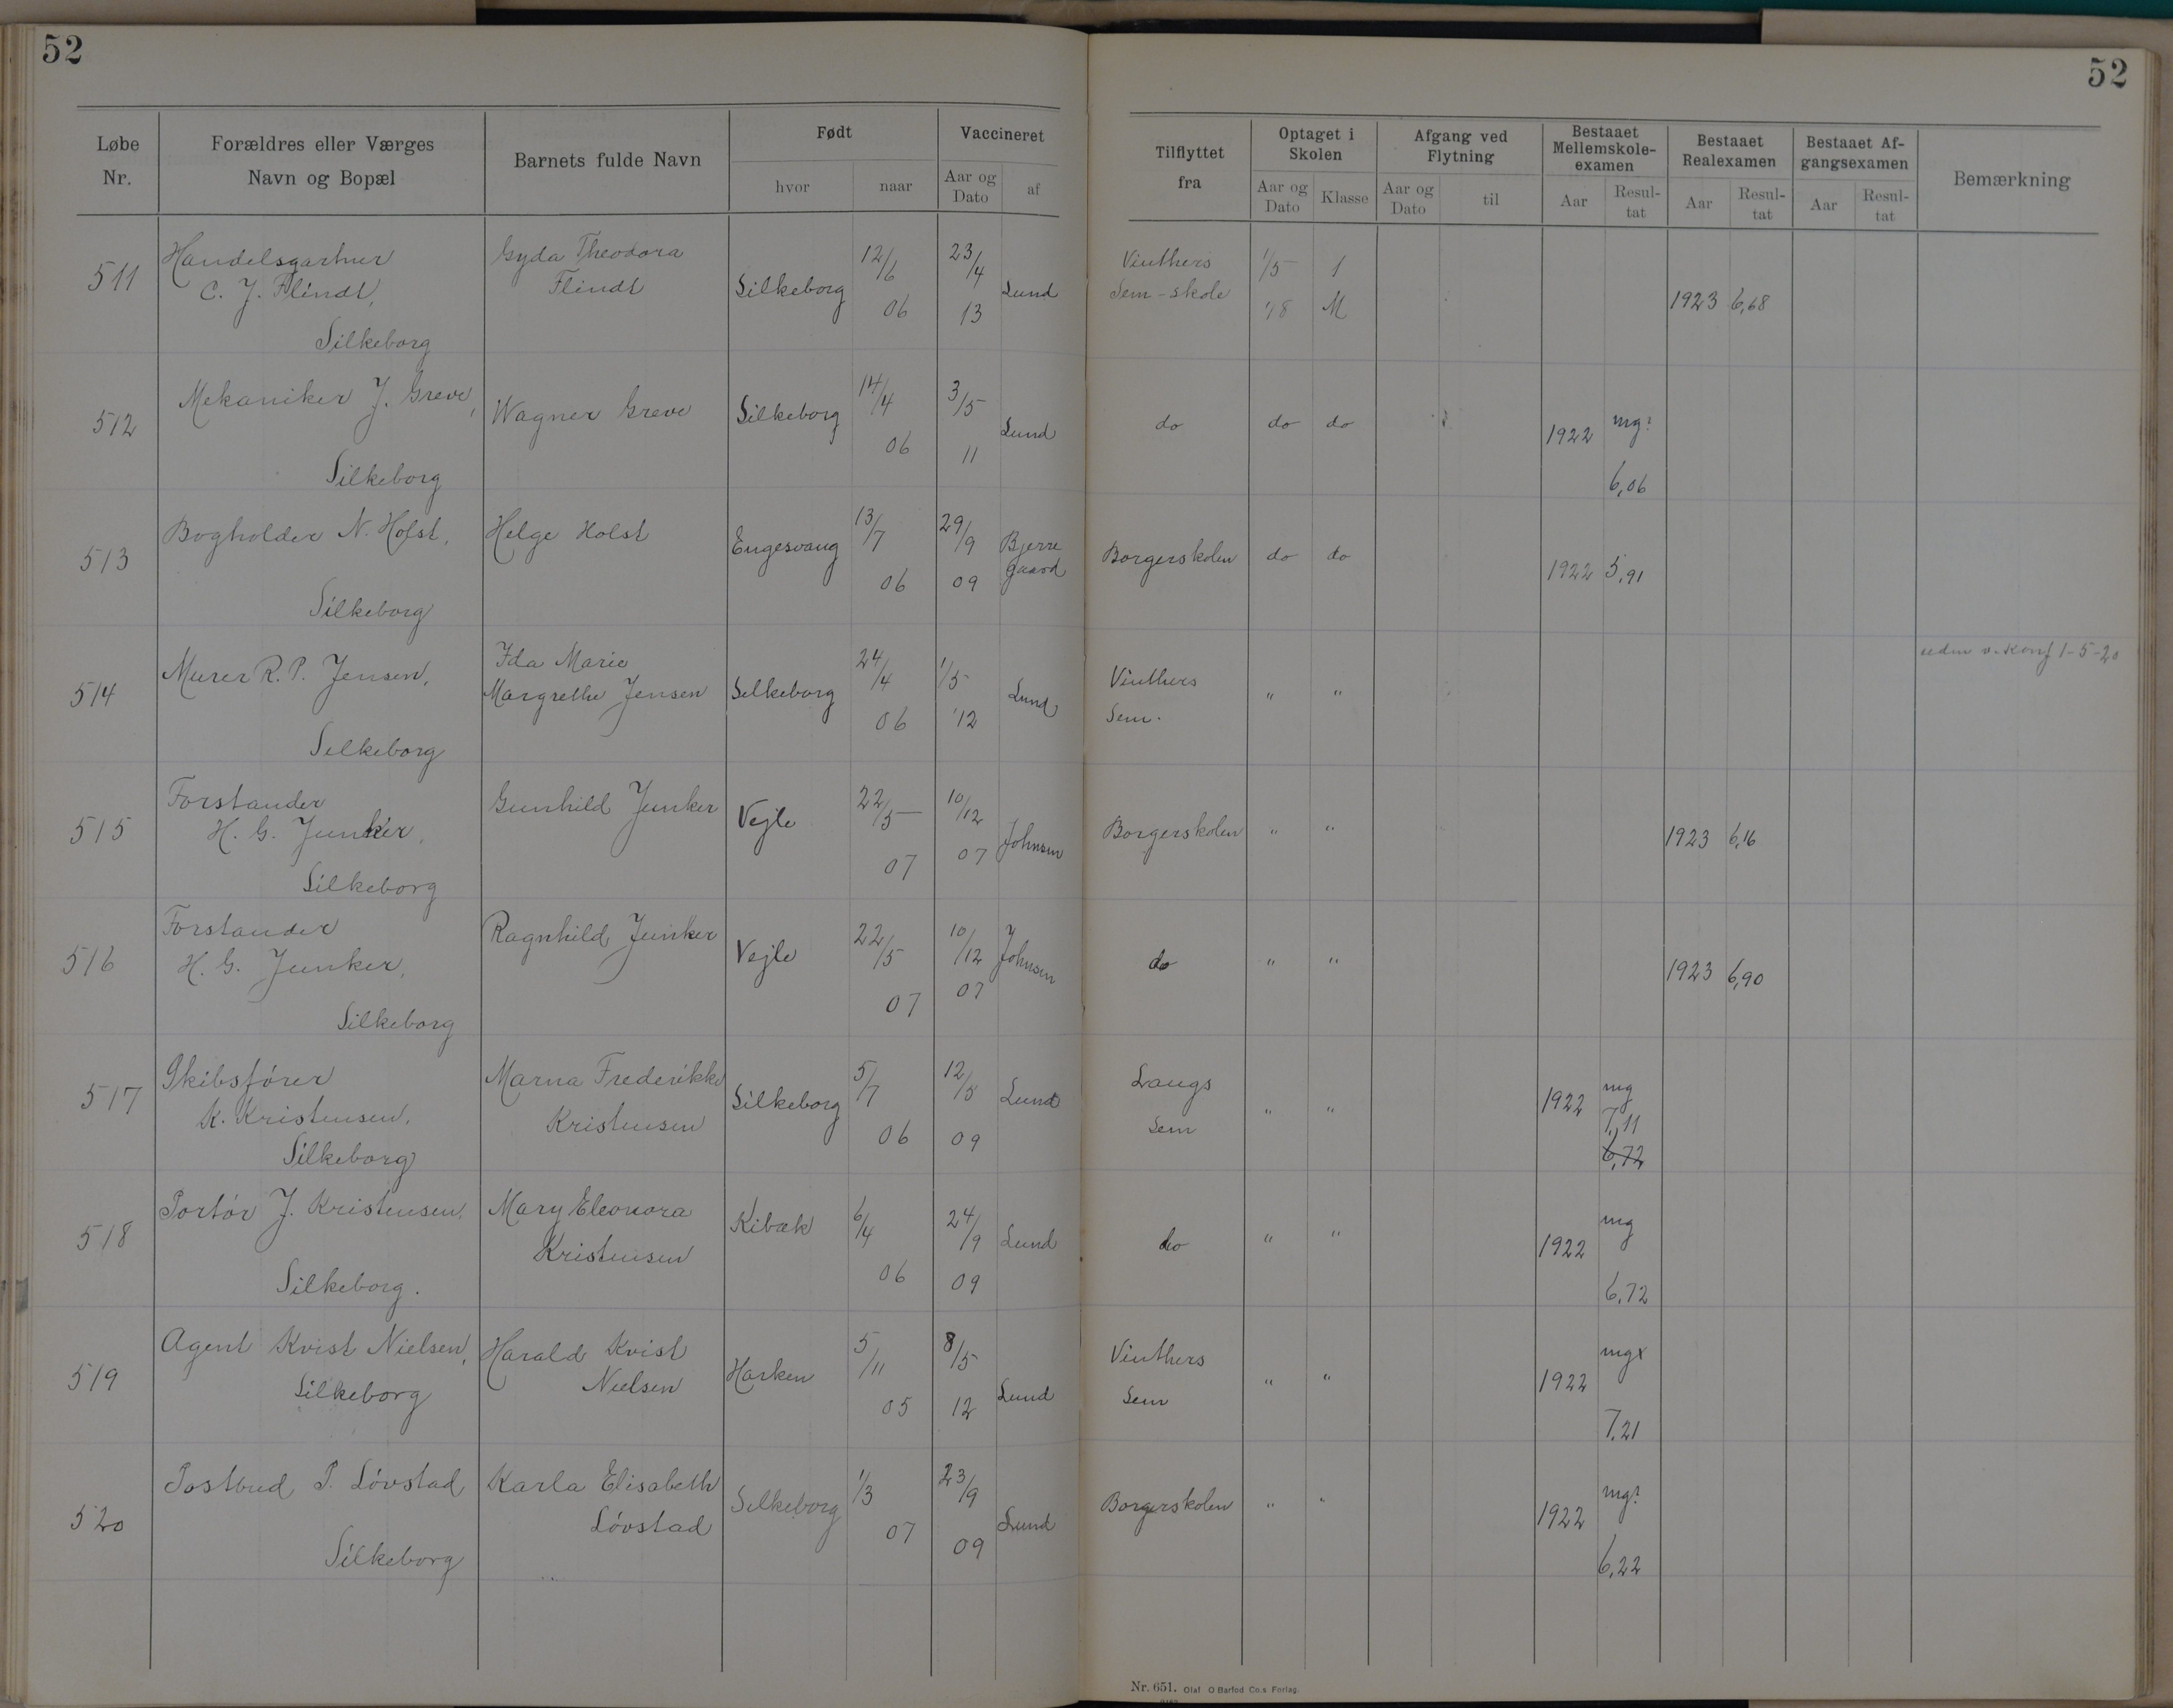 52
52
Løbe Nr.
Forældres eller Værges Navn og Bopæl
Barnets fulde Navn
Født
hvor
naar
Vaccineret
Aar og Dato
af
Tilflyttet fra
Optaget i Skolen
Aar og Dato
Klasse
Afgang ved Flytning
Aar og Dato
til
Bestaaet Mellemskole-examen
Aar
Resul-tat
Bestaaet Realexamen
Aar
Resul-tat
Bestaaet Af-gangsexamen
Aar
Resul-tat
Bemærkning
511
Handelsgartner
C. J. Flindt,
Silkeborg
Gyda Theodora
Flindt
Silkeborg
12/6
06
23/4
13
Lund
Vinthers
Sem-skole
1/5
18
1
M
1923 6,68
512
Mekaniker J. Greve,
Silkeborg
Wagner Greve
Silkeborg
14/4
06
3/5
11
Lund
do
do
do
1922
mg?
6,06
513
Bogholder N. Holst,
Silkeborg
Helge Holst
Engesvang
13/7
06
29/9
09
Bjerre
gaard
Borgerskolen
do
do
1922 5,91
514
Murer R. P. Jensen,
Silkeborg
Ida Marie
Margrethe Jensen
Silkeborg
24/4
06
1/5
12
Lund
Vinthers
Sem.
"
"
udm v. Konf 1-5-20
515
Forstander
H. G. Junker,
Silkeborg
Gunhild Junker
Vejle
22/5
07
10/12
07
Johnsen
Borgerskolen
"
"
1923 6,16
516
Forstander
H. G. Junker,
Silkeborg
Ragnhild Junker
Vejle
22/5
07
10/12
07
Johnsen
do
"
"
1923 6,90
517
Skibsfører
K. Kristensen,
Silkeborg
Marna Frederikke
Kristensen
Silkeborg
5/7
06
12/5
09
Lund
Langs
Sem
"
"
1922
mg
7,11
6,72
518
Portør J. Kristensen,
Silkeborg.
Mary Eleonora
Kristensen
Kibæk
6/4
06
24/9
09
Lund
do
"
"
1922
mg
6,72
519
Agent Kvist Nielsen,
Silkeborg
Harald Kvist
Nielsen
Harken
5/11
05
8/5
12
Lund
Vinthers
Sem
"
"
1922
mgx
7,21
520
Postbud P. Lövstad
Silkeborg
Karla Elisabeth
Lövstad
Silkeborg
1/3
07
23/9
09
Lund
Borgerskolen
"
"
1922
mg?
6,22
Nr. 651. Olaf O Barfod Co.s Forlag.